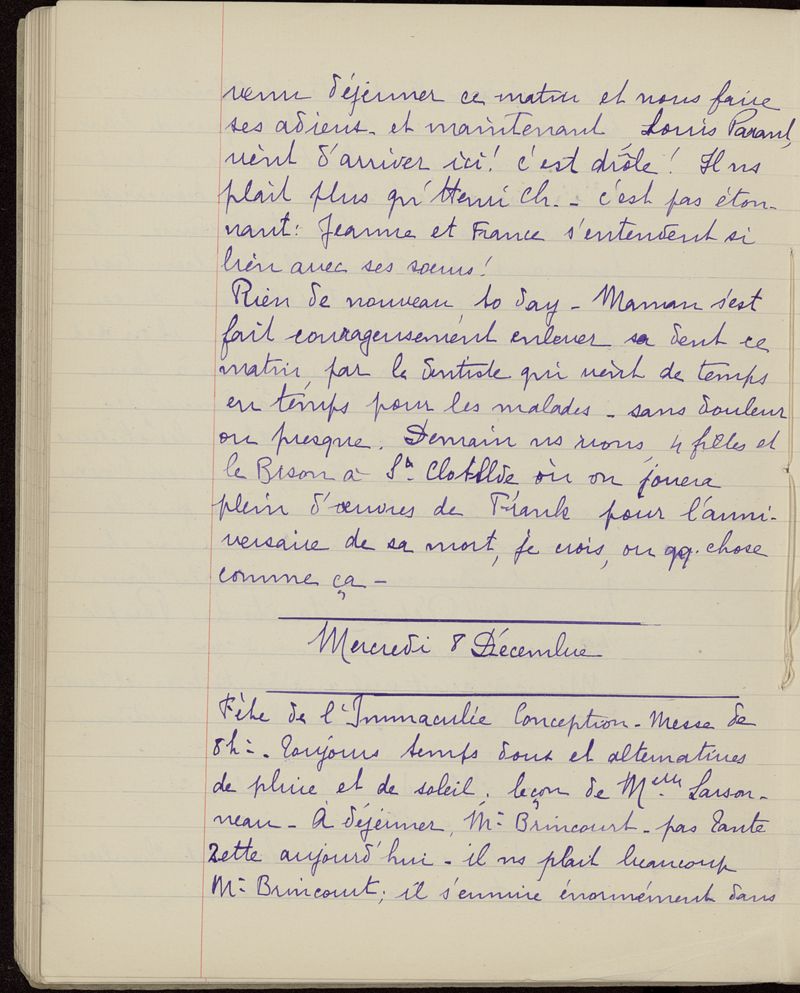 venu déjeuner ce matin et nous faire
ses adieux - et maintenant Louis Parant,
vient d'arriver ici! c'est drôle! Il ns
plait plus qu'Henri Ch. - c'est pas éton-
nant: Jeanne et France s'entendent si
bien avec ses sœurs!
Rien de nouveau to day - Maman s'est
fait courageusement enlever sa dent ce
matin, par le dentiste qui vient de temps
en temps pour les malades - sans douleur
ou presque. Demain ns irons, 4 filles et
le Bison à Ste Clotilde où on jouera
plein d'œuvres de Frank pour l'anni-
versaire de sa mort, je crois, ou qq. chose
comme ça -
Mercredi 8 Décembre
Fête de l'Immaculée Conception - Messe de
8h - Toujours temps doux et alternatives
de pluie et de soleil. leçon de Melle Larson-
neau - À déjeuner, Mr Brincourt - pas Tante
Zette aujourd'hui - il ns plait beaucoup
Mr Brincourt; il s'ennuie énormément dans